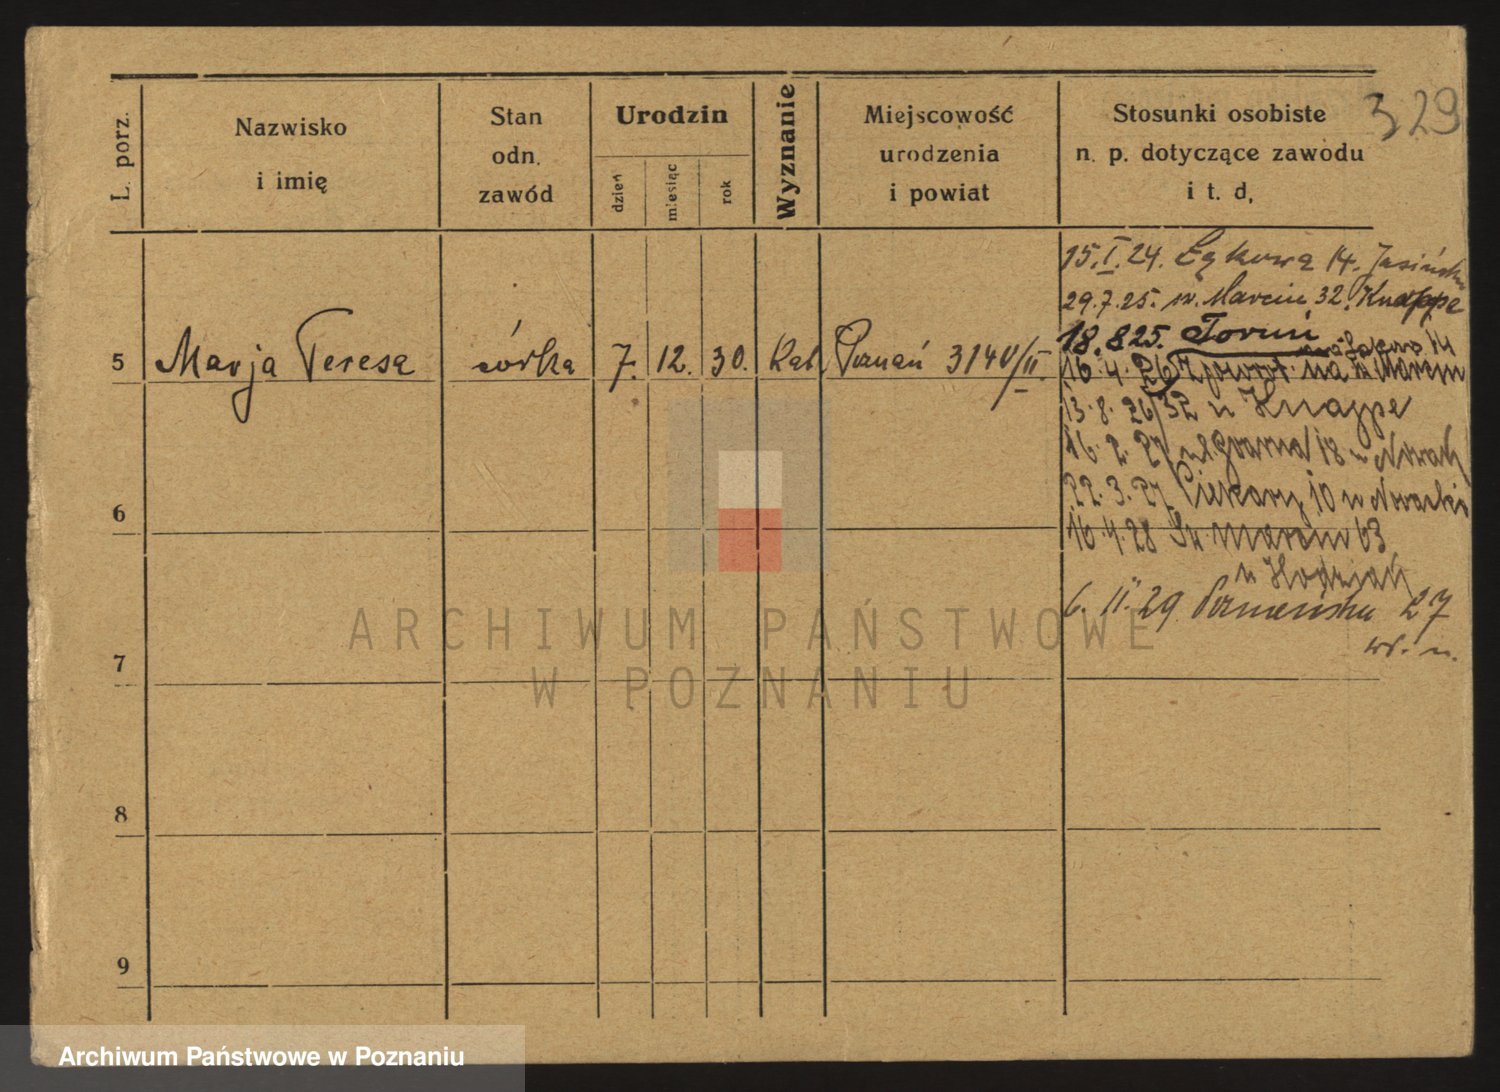 329
L. porz.
Nazwisko
i imię
Stan
odn.
zawód
Urodzin
dzień
miesiąc
rok
Wyznanie
Miejscowość
urodzenia
i powiat
Stosunki osobiste
n. p. dotyczące zawodu
i t. d,
15.I.24. Łąkowa 14. Jasińsk
29.7.25. św. Marcin 32. Knappe
18.8 25. Toruń
5 Marja Teresa córka 7. 12. 30. Kat. Poznań 3140/II.
16.4.26 z powrot. na św Marcin
13.8.26/32 u Knappe
16.2.27 18 u Nowak
22.3.27 Piekary 10 u Nowacki
6
16.4.28 Św. Marcin 63
u
6.II.29 27
7
8
9
ARCHIWUM PAŃSTWOWE
W POZNANIU
Archiwum Państwowe w Poznaniu